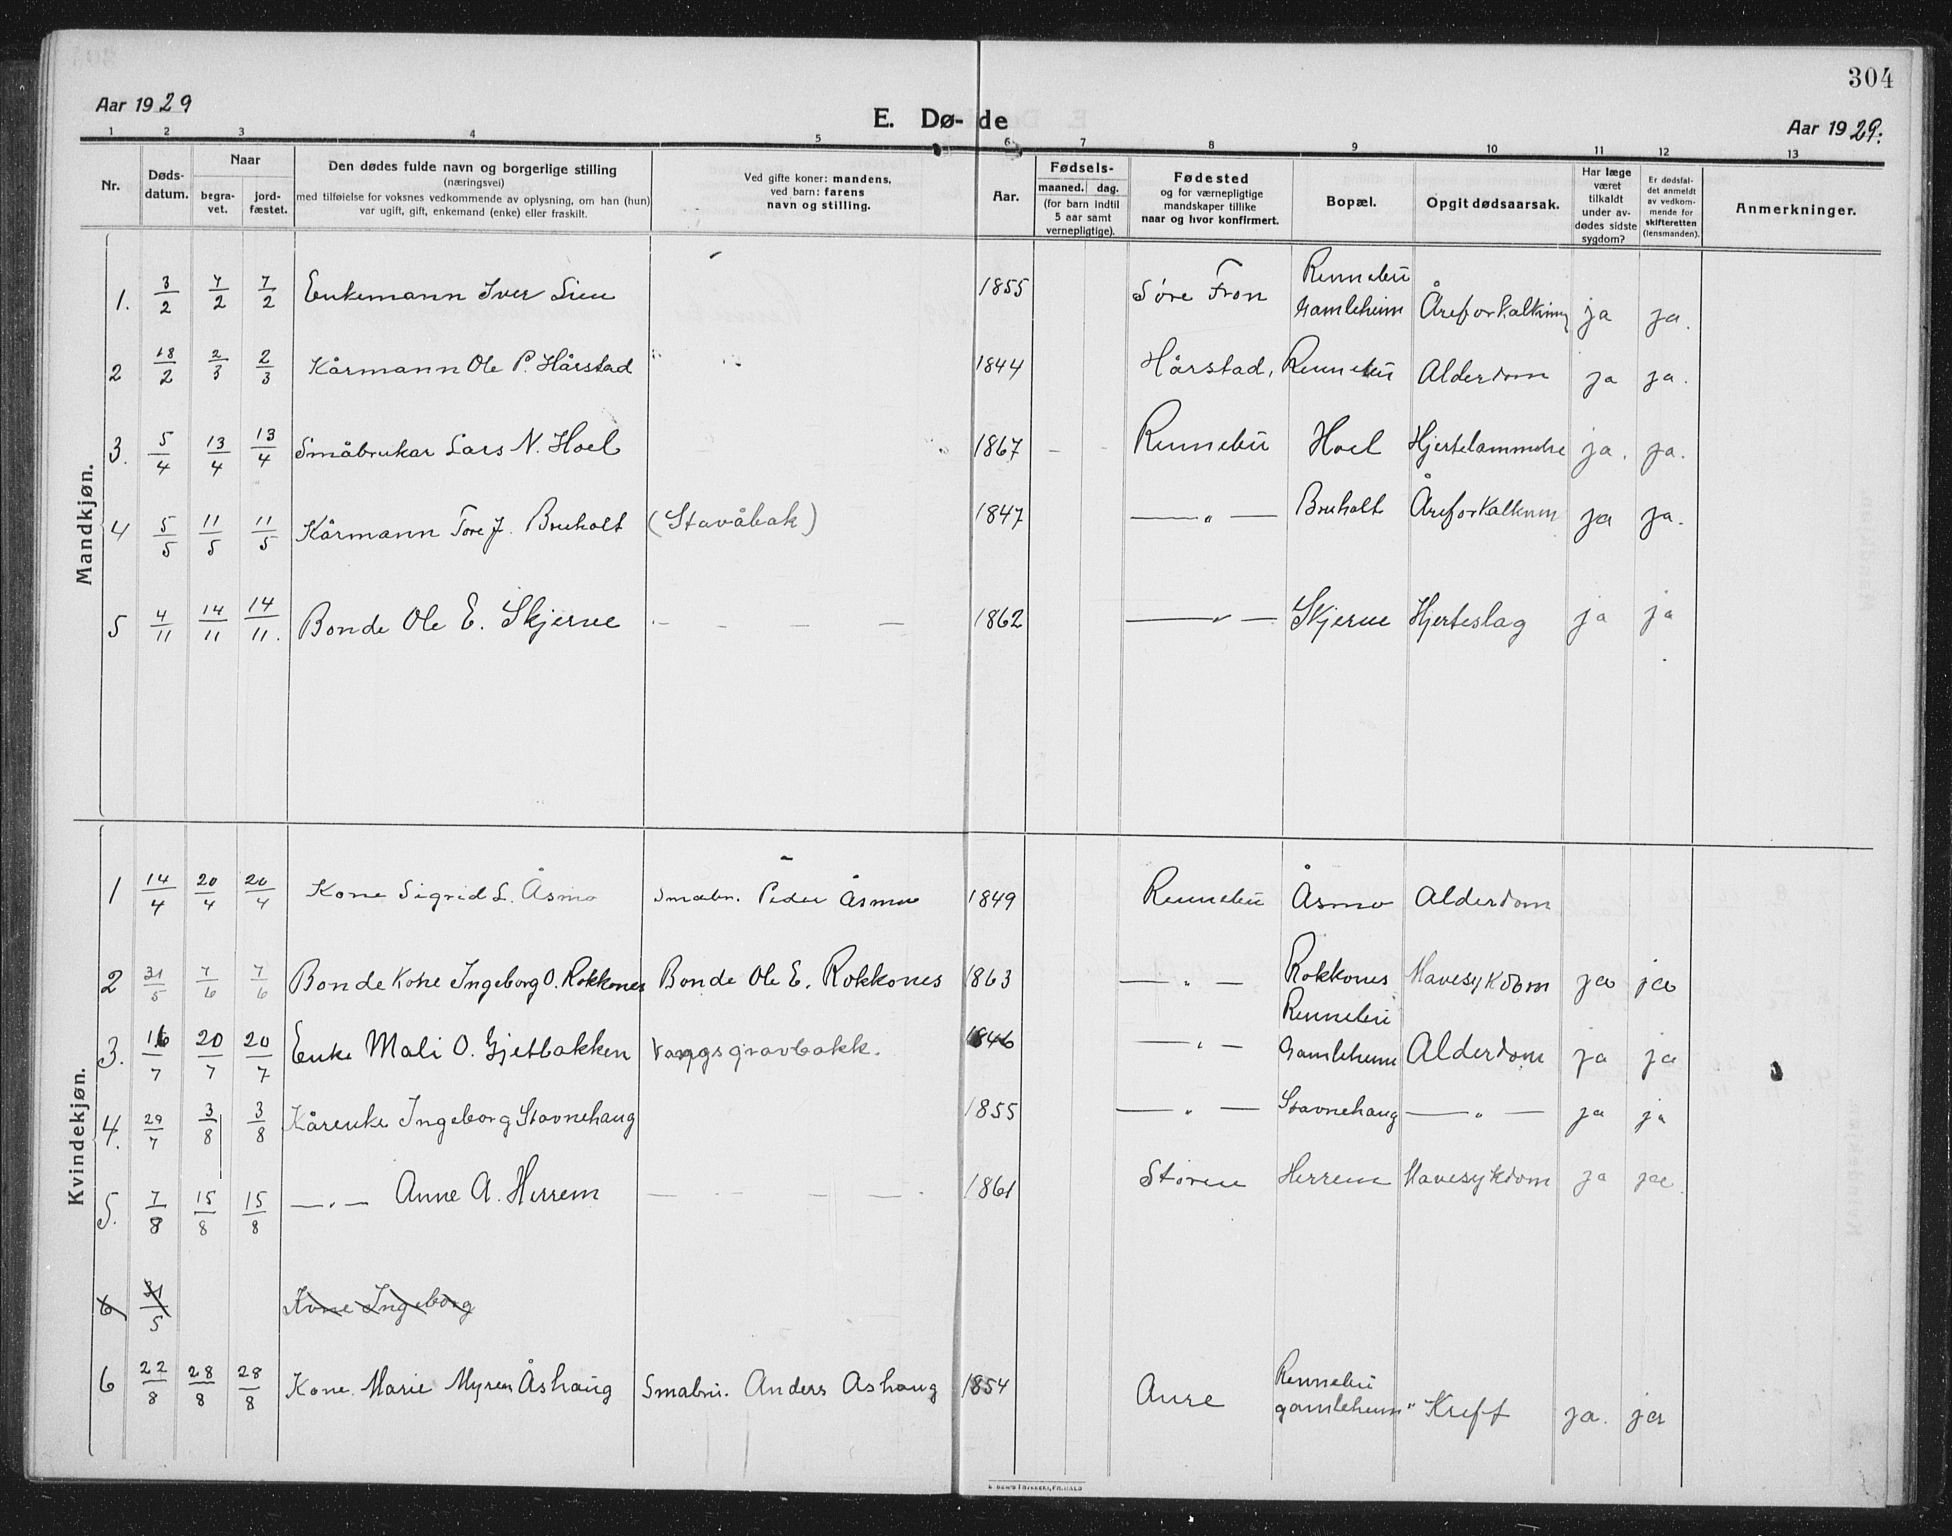 304
Aar 1929
E. Dø-de
Aar 1929.
1 2 3 4 5 6 7 8 9 10 11 12 13
Nr.
Døds-datum.
Naar
begra-vet.
jord-fæstet.
Den dødes fulde navn og borgerlige stilling
(næringsvei)
med tilføielse for voksnes vedkommende av oplysning, om han (hun)
var ugift, gift, enkemand (enke) eller fraskilt.
Ved gifte koner: mandens,
ved barn: farens
navn og stilling.
Aar.
Fødsels-
maaned. dag.
(for barn indtil
5 aar samt
vernepligtige).
Fødested
og for værnepligtige
mandskaper tillike
naar og hvor konfirmert.
Bopæl.
Opgit dødsaarsak.
Har læge
været
tilkaldt
under av-
dødes sidste
sygdom?
Er dødsfal-
det anmeldt
av vedkom-
mende for
skifteretten
(lensmanden).
Anmerkninger.
Mandkjøn.
1. 3/2 7/2 7/2 Enkemann Iver Lien 1855 Søre Fron Rennebu Gamleheim Åreforkalkning ja ja.
2 18/2 2/3 2/3 Kårmann Ole P. Hårstad 1844 Hårstad, Rennebu Alderdom ja ja.
3. 5/4 13/4 13/4 Småbrukar Lars N. Hoel 1867 - - Rennebu Hoel Hjertelammelse ja. ja.
4 5/5 11/5 11/5 Kårmann Tore J. Bruholt (Stavåbak) 1847 — " — Bruholt Åreforkalknin ja ja.
5 4/11 14/11 14/11. Bonde Ole E. Skjerve - - - - 1862 — " — Skjerve Hjerteslag ja ja
Kvindekjøn.
1 14/4 20/4 20/4 Kone Sigrid L. Åsmo Småbr. Peder Åsmo 1849 Rennebu Åsmo Alderdom
2 31/5 7/6 7/6 Bonde Kone Ingeborg O. Rokkones Bonde Ole E. Rokkones 1863 — " — Rokkones Mavesykdom ja ja
3. 16/7 20/7 20/7 Enke Mali O. Gjetbakken Vangsgravbakk. 1846 — " — Rennebu Gamleheim Alderdom ja ja
4. 29/7 3/8 3/8 Kårenke Ingeborg Stavnehaug 1855 — " — Stavnehaug — " — ja ja
5. 7/8 15/8 15/8 — " — Anne A. Herrem - - - - 1861 Støren Herrem Mavesykdom ja ja.
6 31/5 Kone Ingeborg
6 22/8 28/8 28/8 Kone Marie Myren Åshaug Småbru. Anders Åshaug 1854 Aure Rennebu gamleheim" Kreft ja. ja